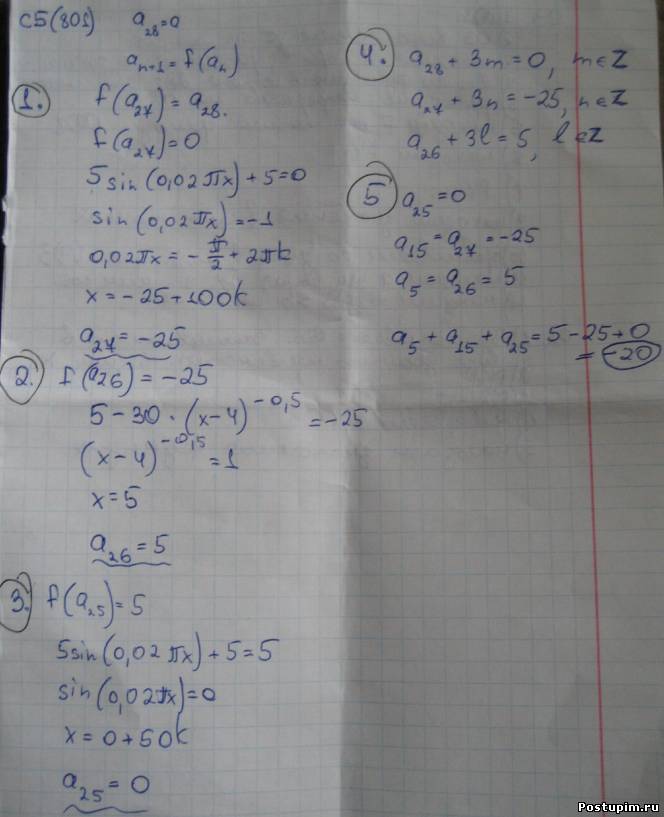 C5(801) a₂₈=0
aₙ₊₁=f(aₙ)
1. f(a₂₇)=a₂₈.
f(a₂₇)=0
5sin(0,02πx)+5=0
sin(0,02πx)=-1
0,02πx=-π/2+2πk
x=-25+100k
a₂₇=-25
2. f(a₂₆)=-25
5-30·(x-4)^-0,5=-25
(x-4)^-0,5=1
x=5
a₂₆=5
3. f(a₂₅)=5
5sin(0,02πx)+5=5
sin(0,02πx)=0
x=0+50k
a₂₅=0
4. a₂₈+3m=0, m∈Z
a₂₇+3n=-25, n∈Z
a₂₆+3l=5, l∈Z
5 a₂₅=0
a₁₅=a₂₇=-25
a₅=a₂₆=5
a₅+a₁₅+a₂₅=5-25+0
=-20
Postupim.ru